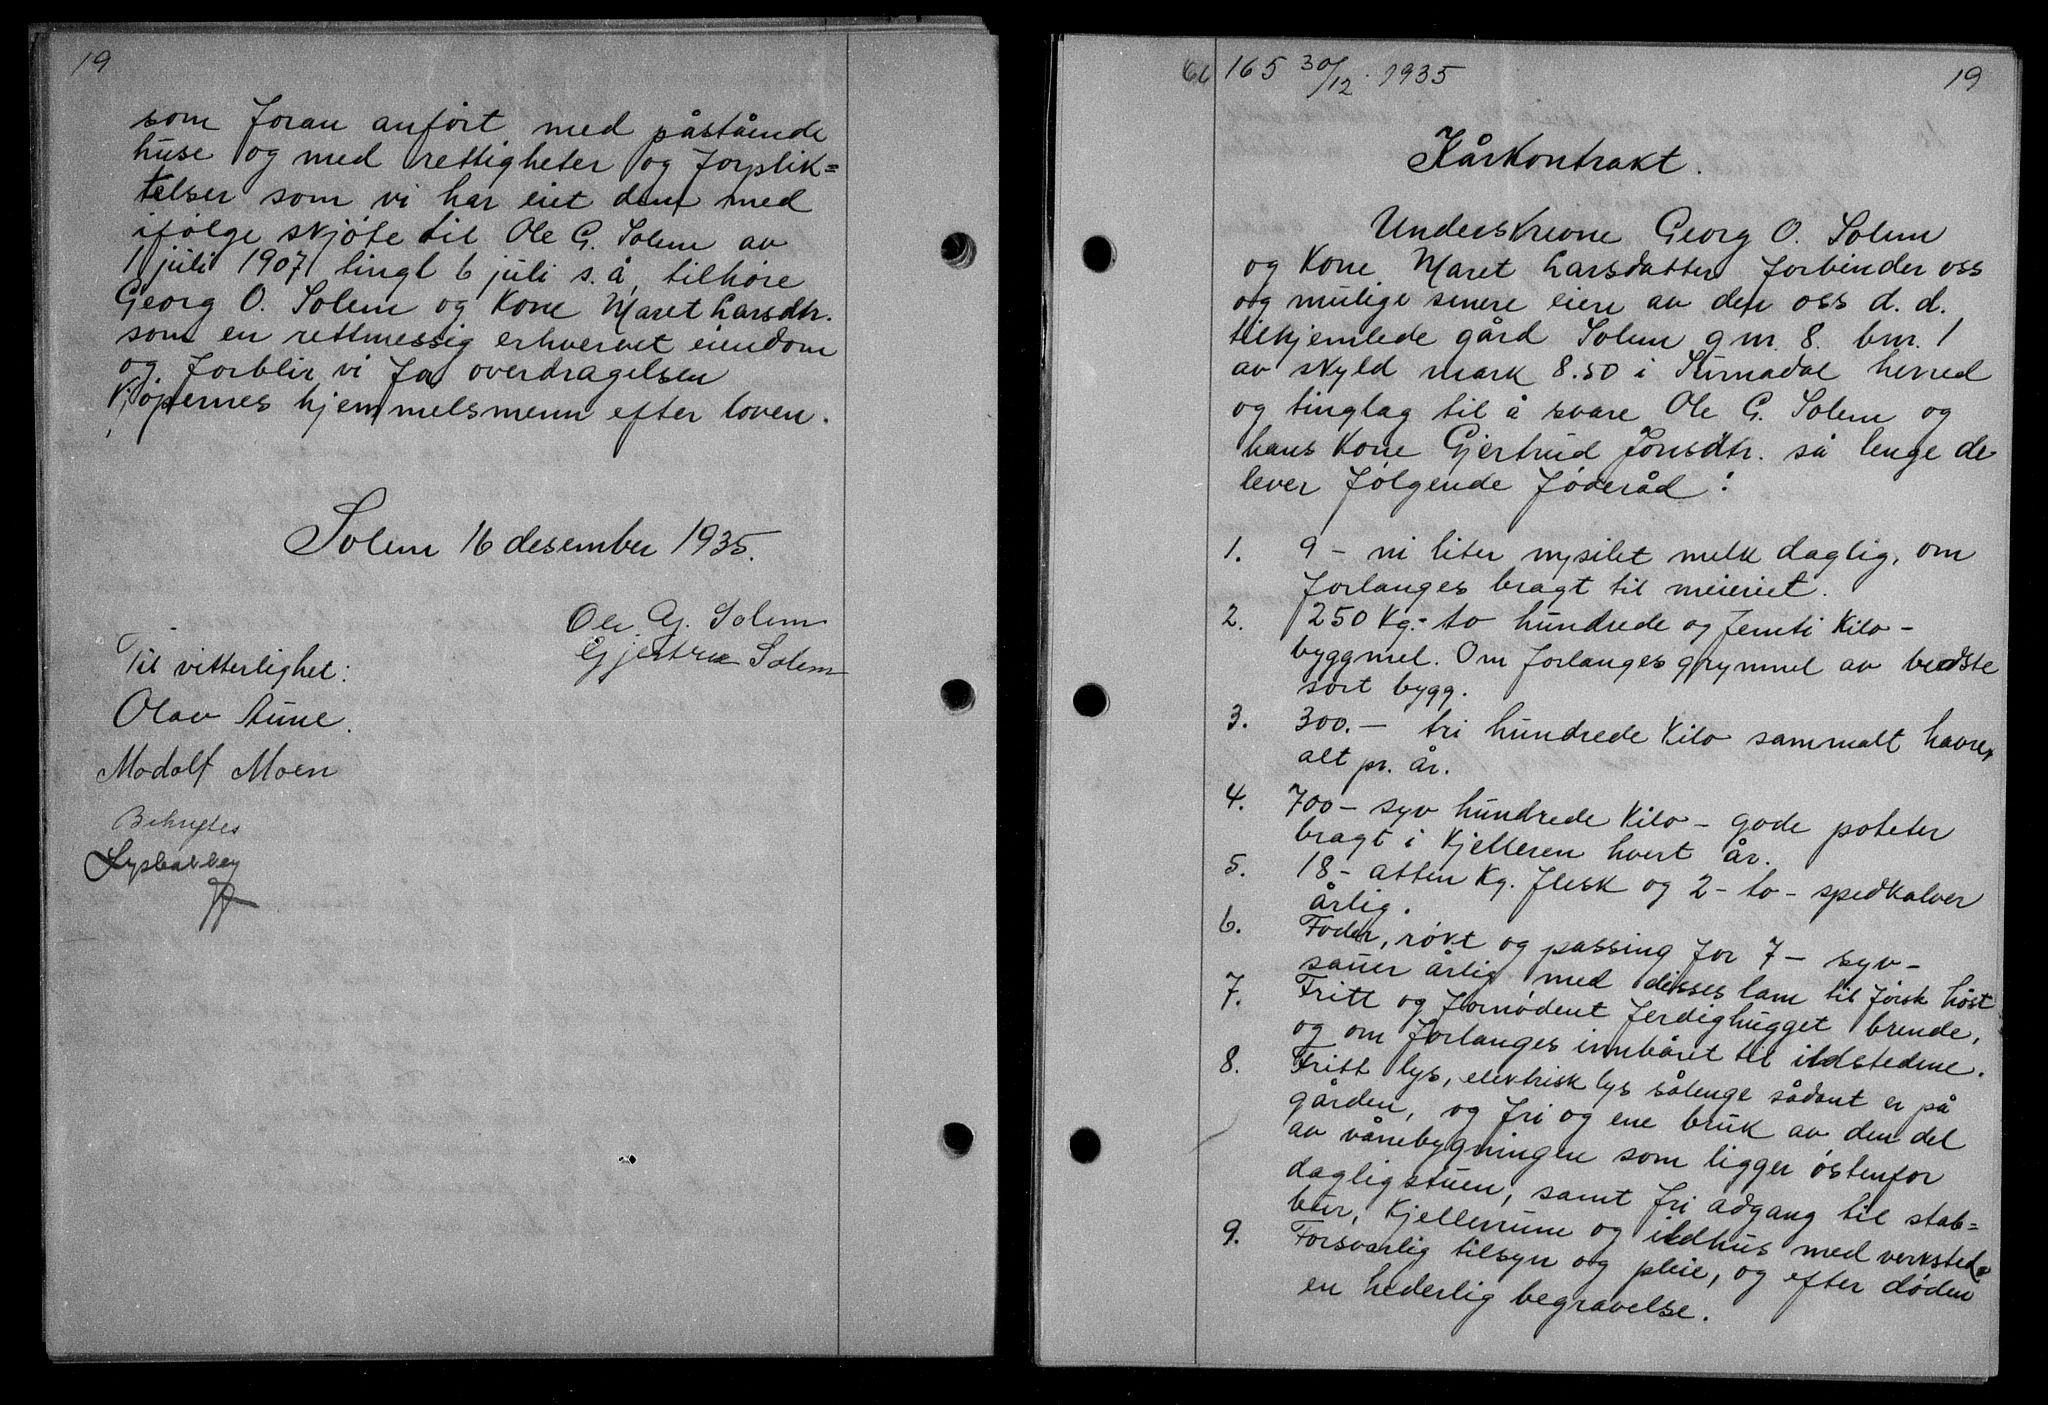 19
som foran anført med påstående
huse og med rettigheter og forplik=
telser som vi har eiet dem med
ifølge skjøte til Ole G. Solem av
1 juli 1907 tingl 6 juli s.å, tilhøre
Georg O. Solem og kone Maret Larsdtr.
som en rettmessig erhvervet eiendom
og forblir vi for overdragelsen
kjøpernes hjemmelsmenn efter loven.
Solem 16 desember 1935.
Ole G. Solem
Gjertrud Solem
Til vitterlighet:
Olav Aune.
Modolf Moen
165 30/12. 1935
19
Kårkontrakt.
Underskrevne Georg O. Solem
og kone Maret Larsdatter forbinder oss
og mulige senere eiere av den oss d. d.
tilskjemlede gård Solem gnr. 8. bnr. 1
av skyld mark 8.50 i Surnadal herred
og tinglag til å svare Ole G. Solem og
hans kone Gjertrud Jonsdtr. så lenge de
lever følgende føderåd:
1. 9 - ni liter nysilet melk daglig, om
forlanges bragt til meieriet.
2. 250 kg.- to hundrede og femti kilo -
byggmel. Om forlanges grynmel av bedste
sort bygg.
3. 300.- tri hundrede kilo sammalt havre,
alt pr. år.
4. 700 - syv hundrede kilo - gode poteter
bragt i kjelleren hvert år.
5. 18 - atten kg. flesk og 2 - to - spedkalver
årlig.
6. Foder, røkt og passing for 7 - syv -
sauer årlig med disses lam til førsk høst
7. Fritt og fornødent ferdighugget brende,
og om forlanges innbåret til ildstedene.
8. Fritt lys, elektrisk lys sålenge sådant er på
gården, og fri og ene bruk av den del
av vånebygningen som ligger østenfor
dagligstuen, samt fri adgang til stab=
bur, kjellerrum og ildhus med verksted
9. Forsvarlig tilsyn og pleie, og efter døden
en hederlig begravelse.